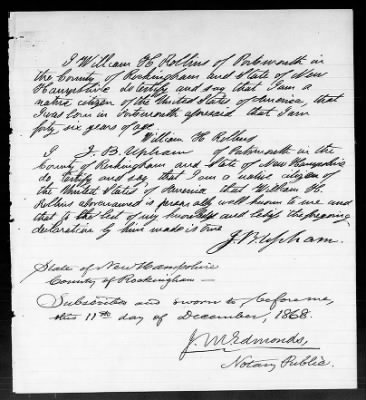 I William H. Rollins of Portsmouth in
the County of Rockingham and State of New
Hampshire do certify and say that I am a
native citizen of the United States of America, that
I was born in Portsmouth aforesaid that I am
forty six years of age.
William H Rollins
I J. B. Upham of Portsmouth in the
County of Rockingham and State of New Hampshire
do, certify and say, that I am a native citizen of
the United States of America that William H.
Rollins abovenamed is personally well known to me and
that to the best of my knowledge and belief the foregoing
declaration by him made is true
J. B. Upham.
State of New Hampshire
County of Rockingham —
Subscribed and sworn to before me,
this 11th day of December, 1868.
J. M Edmonds,
Notary Public.